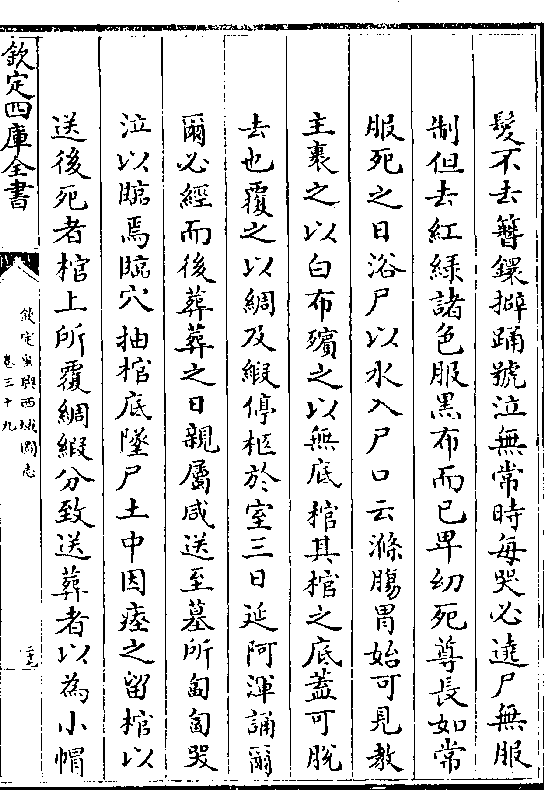 髮不去簪鐶擗踊號泣無常時每哭必遶尸無服
制但去紅綠諸色服黑布而已卑幼死尊長如常
服死之日浴尸以水入尸口云滌腸胃始可見教
主裹之以白布殯之以無底棺其棺之底蓋可脫
去也覆之以綢及緞停柩於室三日延阿渾誦爾
爾必經而後葬葬之日親屬咸送至墓所匍匐哭
泣以臨焉臨穴抽棺底墜尸土中因瘞之留棺以
送後死者棺上所覆綢緞分致送葬者以為小帽
欽定四庫全書
欽定皇輿西域圖志
卷三十九